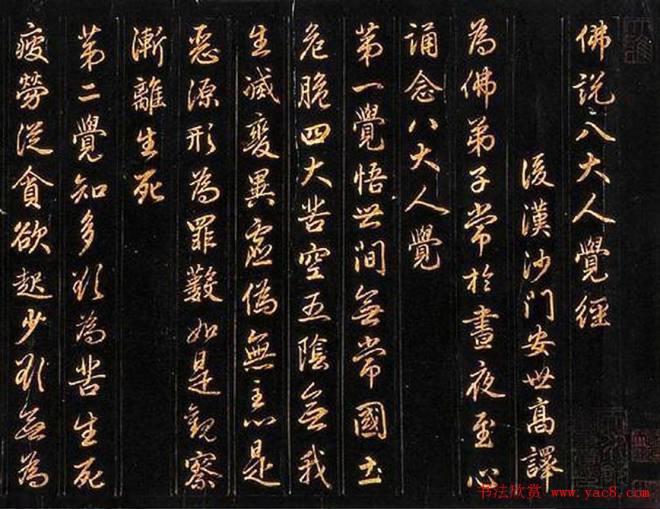 佛說八大人覺經
後漢沙門安世高譯
為佛弟子常於晝夜至心
誦念八大人覺
第一覺悟世間無常國土
危脆四大苦空五陰無我
生滅變異虛偽無主心是
惡源形為罪藪如是觀察
漸離生死
第二覺知多欲為苦生死
疲勞從貪欲起少欲無為
书法欣赏 ...www.yac8.com